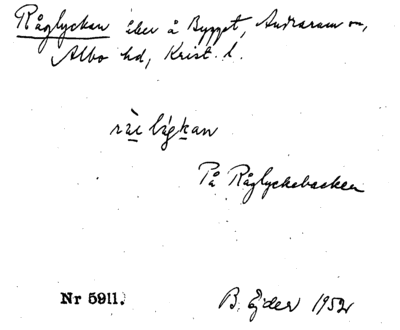 Råglyckan över å Bygget, Andrarum sn,
Albo hd, Krist. l.
ràe lýgkan
På Råglyckebacken
Nr 5911. B. Ejder 1952